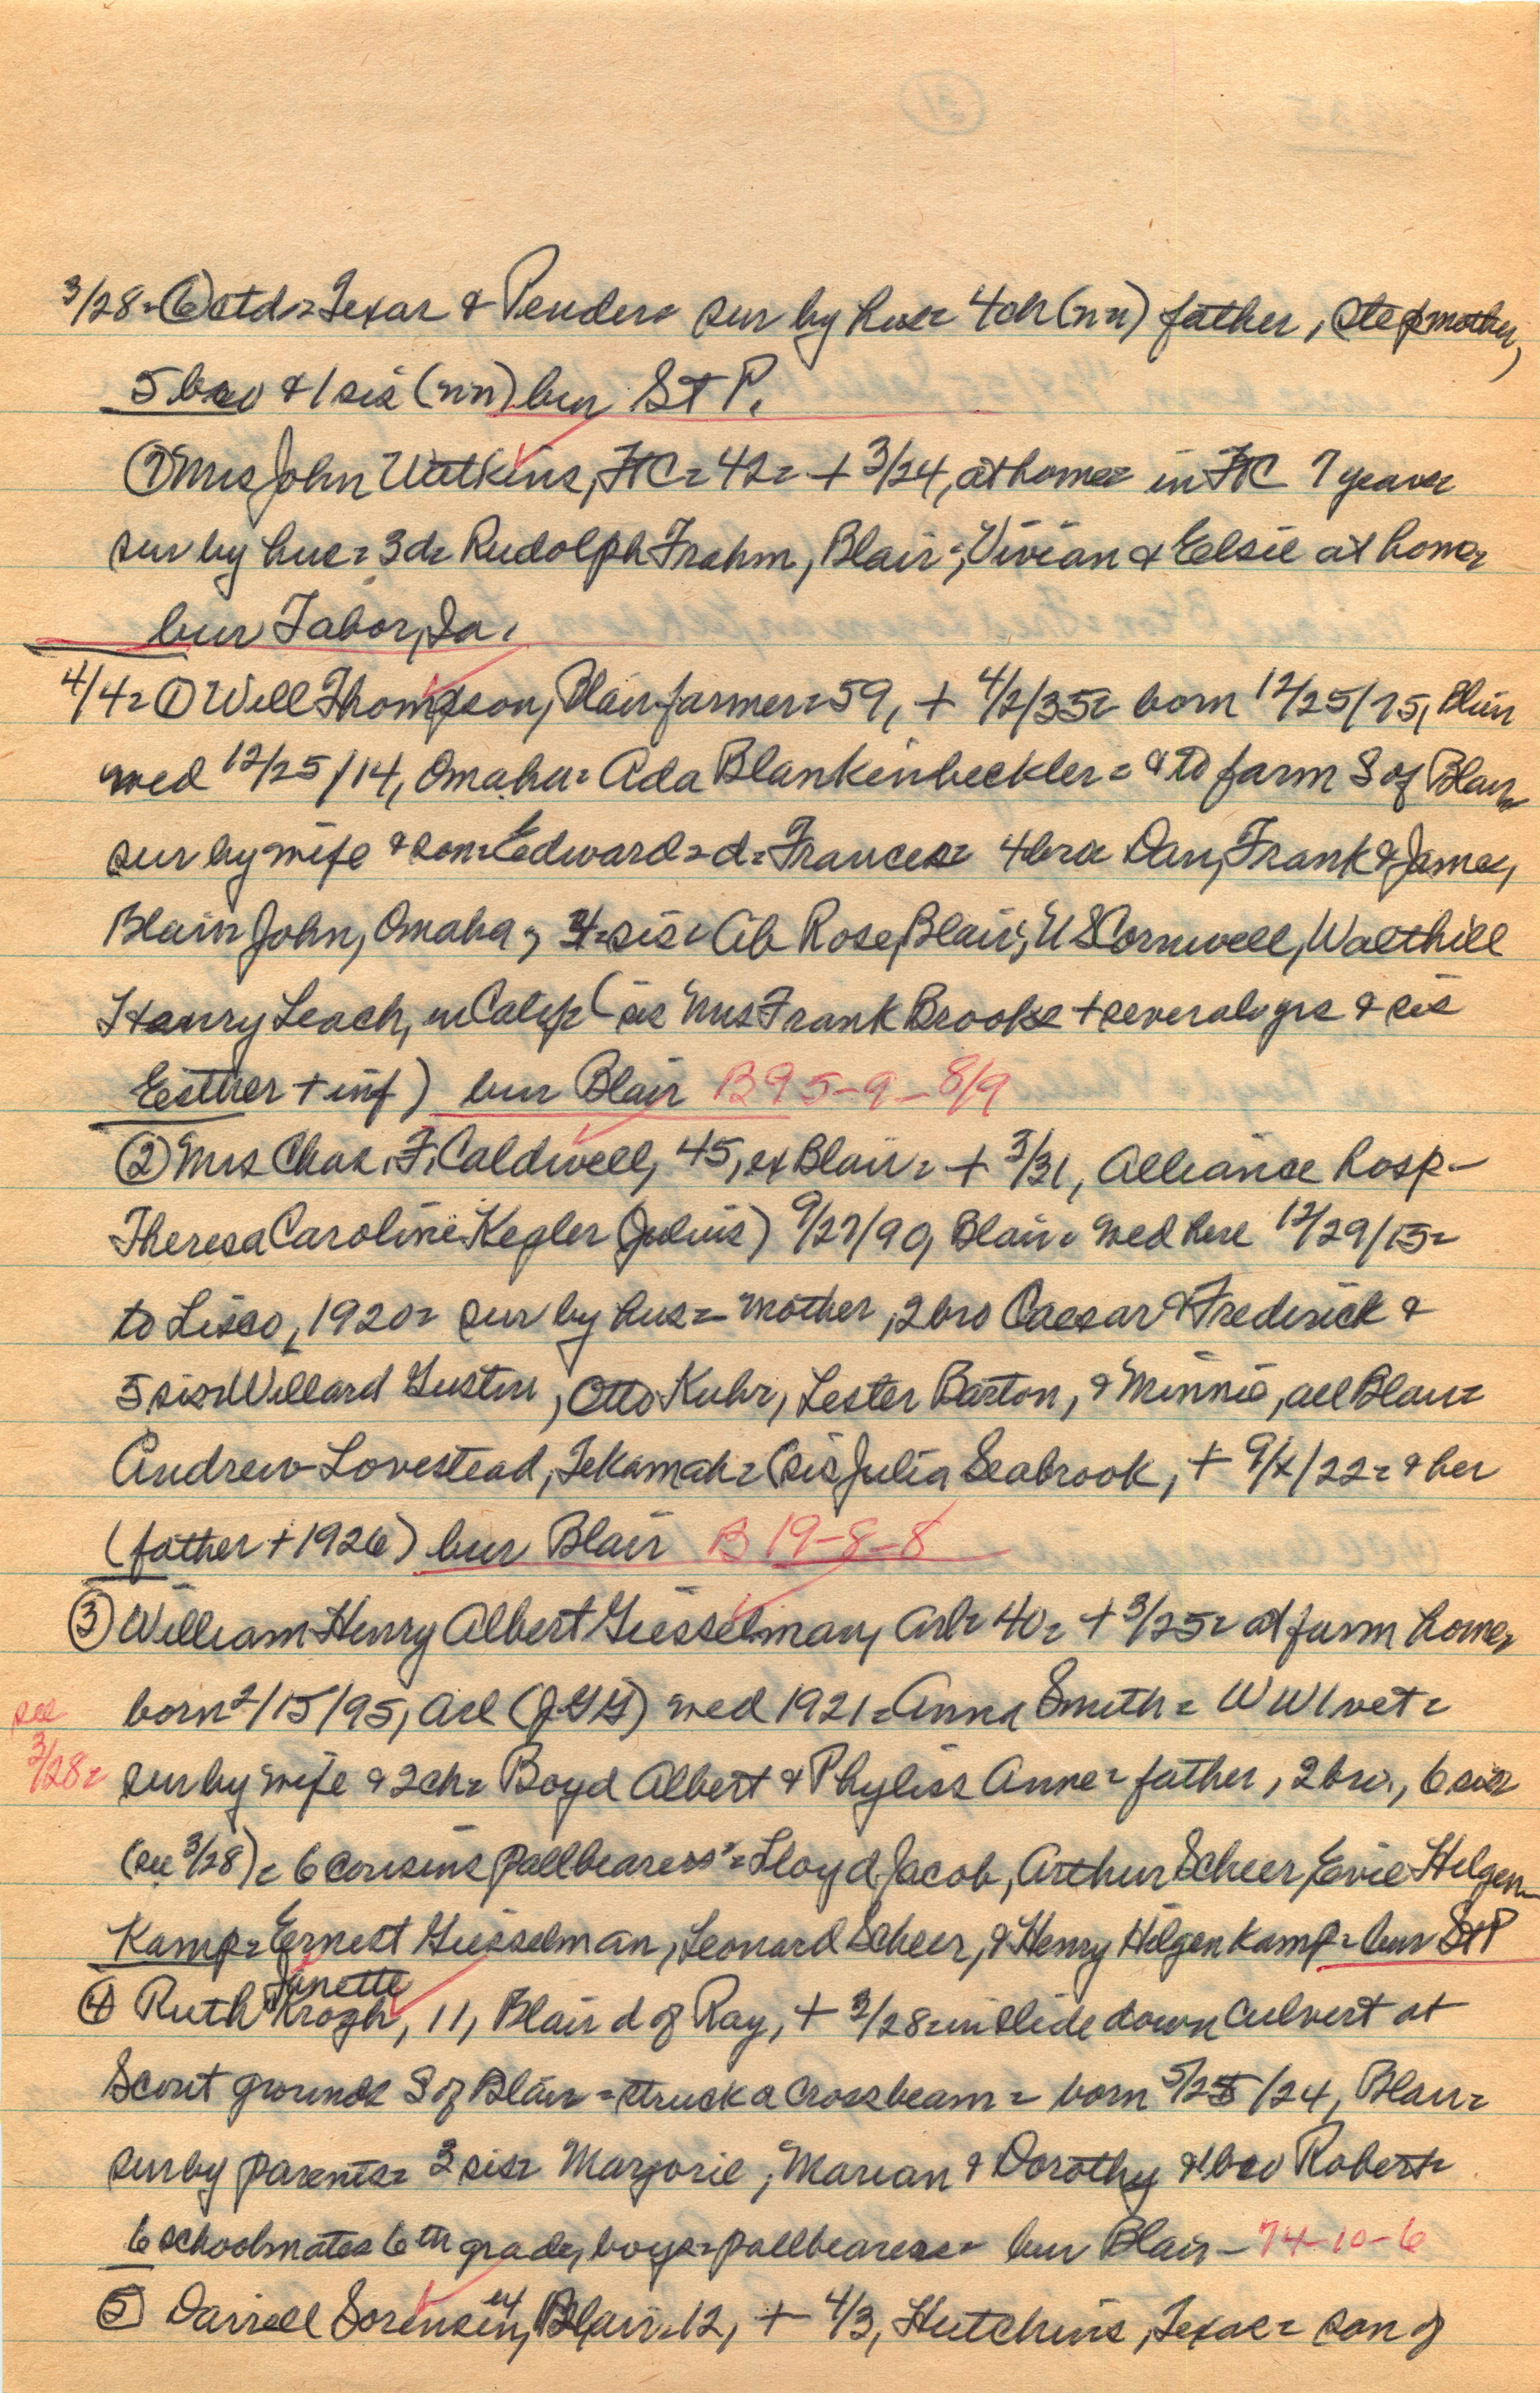 3/28 = ⑥ ctd = Texas & Pender = sur by hus = 4 ch (nn) father, stepmother,
5 bro & 1 sis (nn) bur St P.
⑦ Mrs John Watkins, FtC = 42 = + 3/24, at home = in FtC 7 years
sur by hus = 3 d = Rudolph Frahm, Blair =, Vivian & Eelsie at home
bur Tabor, Ia.
4/4 = ① Will Thompson, Blair farmer = 59, + 4/2/35 = born 12/25/75, Blair
wed 12/25/14, Omaha = Ada Blankinbeckler = & to farm S of Blair
sur by wife & son = Edward = d = Frances = 4 bro = Dan, Frank & James,
Blair = John, Omaha; 3 = sis = Ab Rose, Blair; U S Cornwell, Walthill
Henry Leach, in Calif = (sis Mrs Frank Brooks + several yrs & sis
Esther + inf) bur Blair B95-9-8/9
② Mrs Chas. F. Caldwell, 45, ex Blair = + 3/31, Alliance hosp -
Theresa Caroline Kegler (Julius) 9/27/90, Blair = wed here 12/29/15 =
to Lisco, 1920 = sur by hus = mother, 2 bro Caesar & Frederick &
5 sis = Willard Gustin, Otto Kuhr, Lester Barton, & Minnie, all Blair =
Andrew Lovestead, Tekamah = (sis Julia Seabrook, + 9/x/22 = & her
(father + 1926) bur Blair B 19-8-8
③ William Henry Albert Giesselman, Arl = 40 = + 3/25 = at farm home
born 2/15/95, Arl (J G G) wed 1921 = Anna Smith = WW1 vet =
see
3/28 = sur by wife & 2 ch = Boyd Albert & Phyliss Anne = father, 2 bro., 6 sis
(see 3/28) = 6 cousins pallbearers = Lloyd Jacob, Arthur Scheer, Evie Hilgen-
kamp = Ernest Giesselman, Leonard Scheer, & Henry Hilgenkamp = bur St P
Janette
④ Ruth Krogh, 11, Blair d of Ray, + 3/28 = in slide down culvert at
Scout grounds S of Blair = struck a crossbeam = born 5/25/24, Blair =
sur by parents = 3 sis = Marjorie, Marian & Dorothy & 1 bro Robert =
6 schoolmates 6th grade, boys = pallbearers = bur Blair - 74-10-6
⑤ Darrell Sorensen, ex Blair = 12, + 4/3, Hutchins, Texas = son of